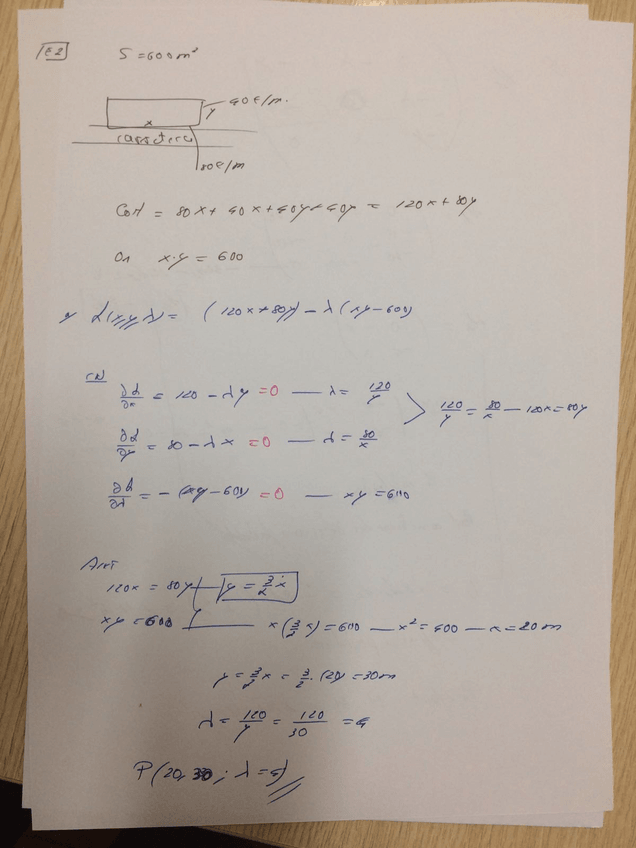 E2
S = 600 m²
40€/m.
y
x
carretera
80€/m
Cost = 80x + 40x + 40y + 40y = 120x + 80y
On x·y = 600
L(x,y,λ) = (120x + 80y) - λ(xy - 600)
CN
∂L/∂x = 120 - λy = 0 — λ = 120/y
120/y = 80/x — 120x = 80y
∂L/∂y = 80 - λx = 0 — λ = 80/x
∂L/∂λ = -(xy - 600) = 0 — xy = 600
120x = 80y — y = 3/2 x
xy = 600 — x(3/2 x) = 600 — x² = 400 — x = 20 m
y = 3/2 x = 3/2 · (20) = 30 m
λ = 120/y = 120/30 = 4
P(20, 30; λ = 4)